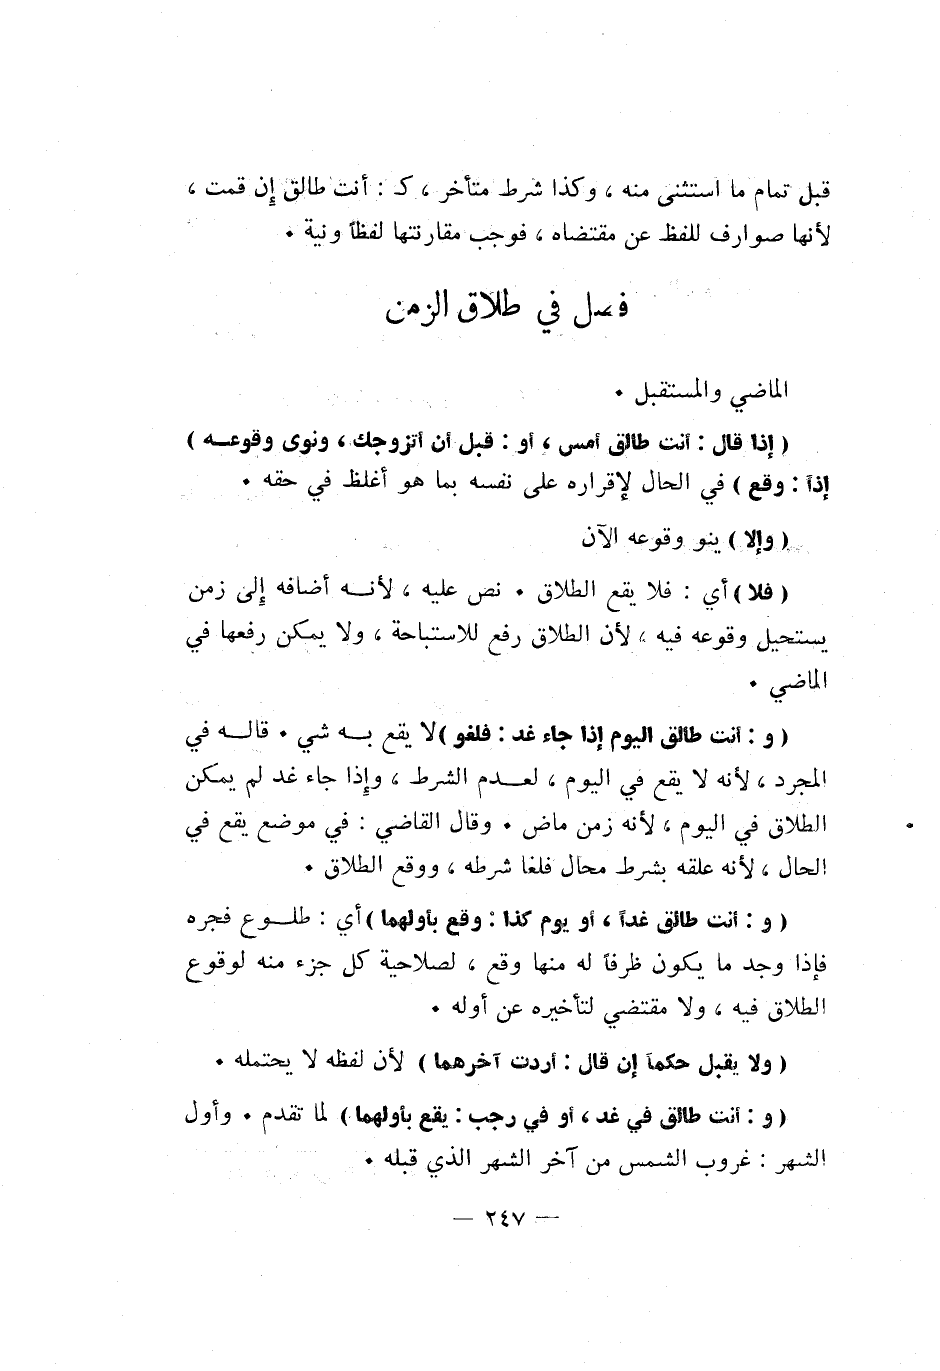 قبل تمام ما استثنى منه ، وكذا شرط متأخر ، كـ : أنت طالق إن قمت ،
لأنها صوارف للفظ عن مقتضاه ، فوجب مقارنتها لفظاً ونية .
فصل في طلاق الزمن
الماضي والمستقبل .
( إذا قال : أنت طالق أمس ، أو : قبل أن أتزوجك ، ونوى وقوعــه )
إذاً : وقع ) في الحال لإقراره على نفسه بما هو أغلظ في حقه .
( وإلا ) ينو وقوعه الآن
( فلا ) أي : فلا يقع الطلاق . نص عليه ، لأنــه أضافه إلى زمن
يستحيل وقوعه فيه ، لأن الطلاق رفع للاستباحة ، ولا يمكن رفعها في
الماضي .
( و : أنت طالق اليوم إذا جاء غد : فلغو ) لا يقع بــه شي . قالــه في
المجرد ، لأنه لا يقع في اليوم ، لعــدم الشرط ، وإذا جاء غد لم يمكن
الطلاق في اليوم ، لأنه زمن ماض . وقال القاضي : في موضع يقع في
الحال ، لأنه علقه بشرط محال فلغا شرطه ، ووقع الطلاق .
( و : أنت طالق غداً ، أو يوم كذا : وقع بأولهما ) أي : طلــوع فجره
فإذا وجد ما يكون ظرفاً له منها وقع ، لصلاحية كل جزء منه لوقوع
الطلاق فيه ، ولا مقتضي لتأخيره عن أوله .
( ولا يقبل حكماً إن قال : أردت آخرهما ) لأن لفظه لا يحتمله .
( و : أنت طالق في غد ، أو في رجب : يقع بأولهما ) لما تقدم . وأول
الشهر : غروب الشمس من آخر الشهر الذي قبله .
— ٢٤٧ —